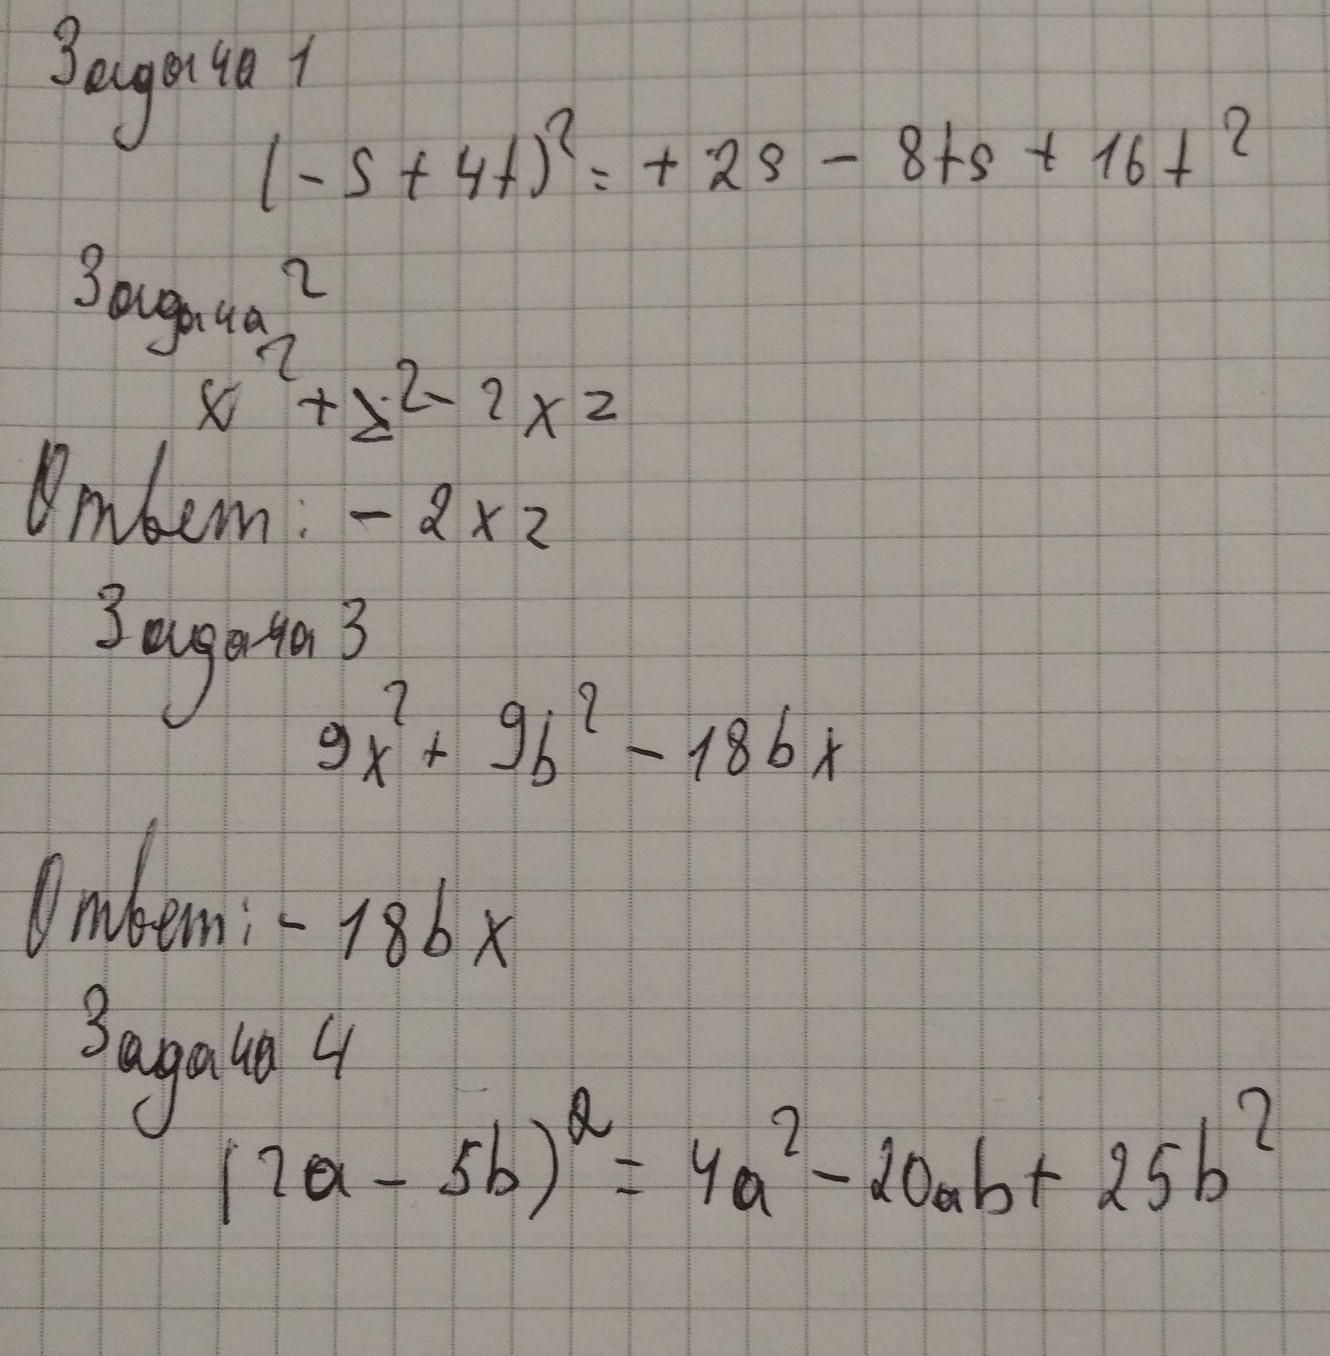 Задача 1
(-s+4t)²=+2s-8ts+16t²
Задача 2
x²+z²-2xz
Ответ: -2xz
Задача 3
9x²+9b²-18bx
Ответ: -18bx
Задача 4
(2a-5b)²=4a²-20ab+25b²